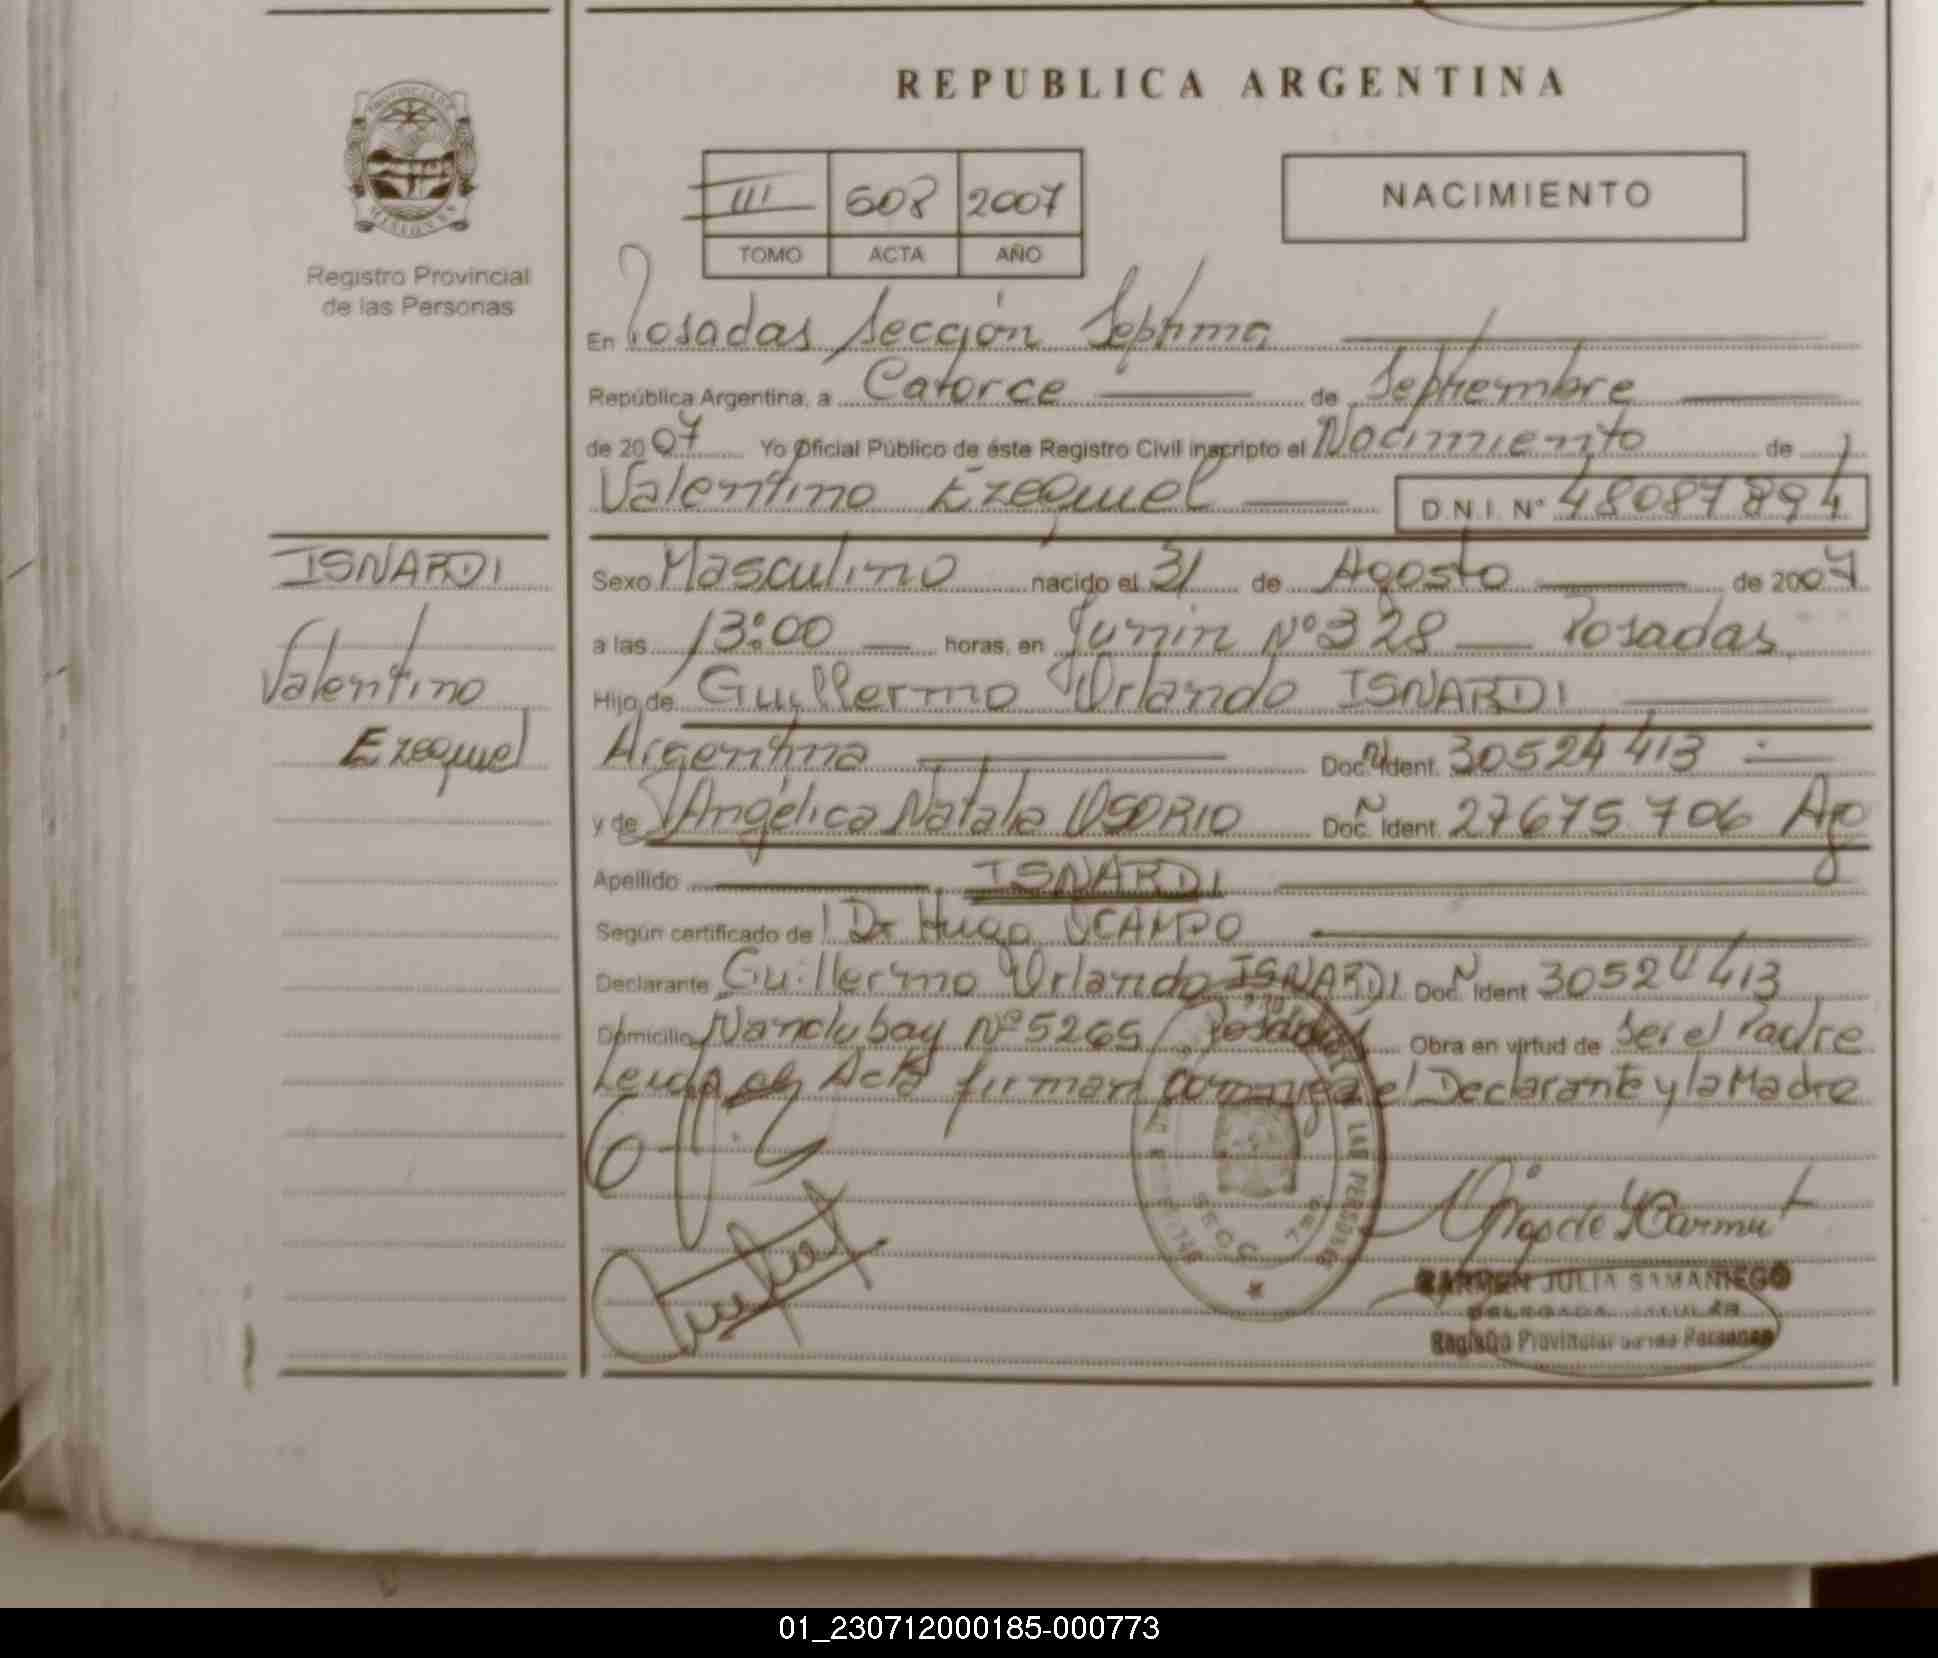 REPUBLICA ARGENTINA
PROVINCIA DE
MISIONES
Registro Provincial
de las Personas
III 608 2007
TOMO ACTA AÑO
NACIMIENTO
En Posadas Sección Septima
República Argentina, a Catorce de Septiembre
de 2007 Yo Oficial Público de éste Registro Civil inscripto el Nacimiento de
Valentino Ezequiel D.N.I. N° 48087894
ISNARDI
Valentino
Ezequiel
Sexo Masculino nacido el 31 de Agosto de 2007
a las 13:00 horas, en Junin Nº 328 Posadas
Hijo de Guillermo Orlando ISNARDI
Argentina Doc. Ident. 30524413
y de Angélica Natalia OSORIO Doc. Ident. 27675706 Arg
Apellido ISNARDI
Según certificado de Dr Hugo OCAMPO
Declarante Guillermo Orlando ISNARDI Doc. Ident 30524413
Domicilio Ñandubay Nº 5265 Posadas Obra en virtud de Ser el Padre
Leida el Acta firman conmigo el Declarante y la Madre
LAS PERSONAS
SECC
CARMEN JULIA SAMANIEGO
DELEGADA TITULAR
Registro Provincial de las Personas
01_230712000185-000773